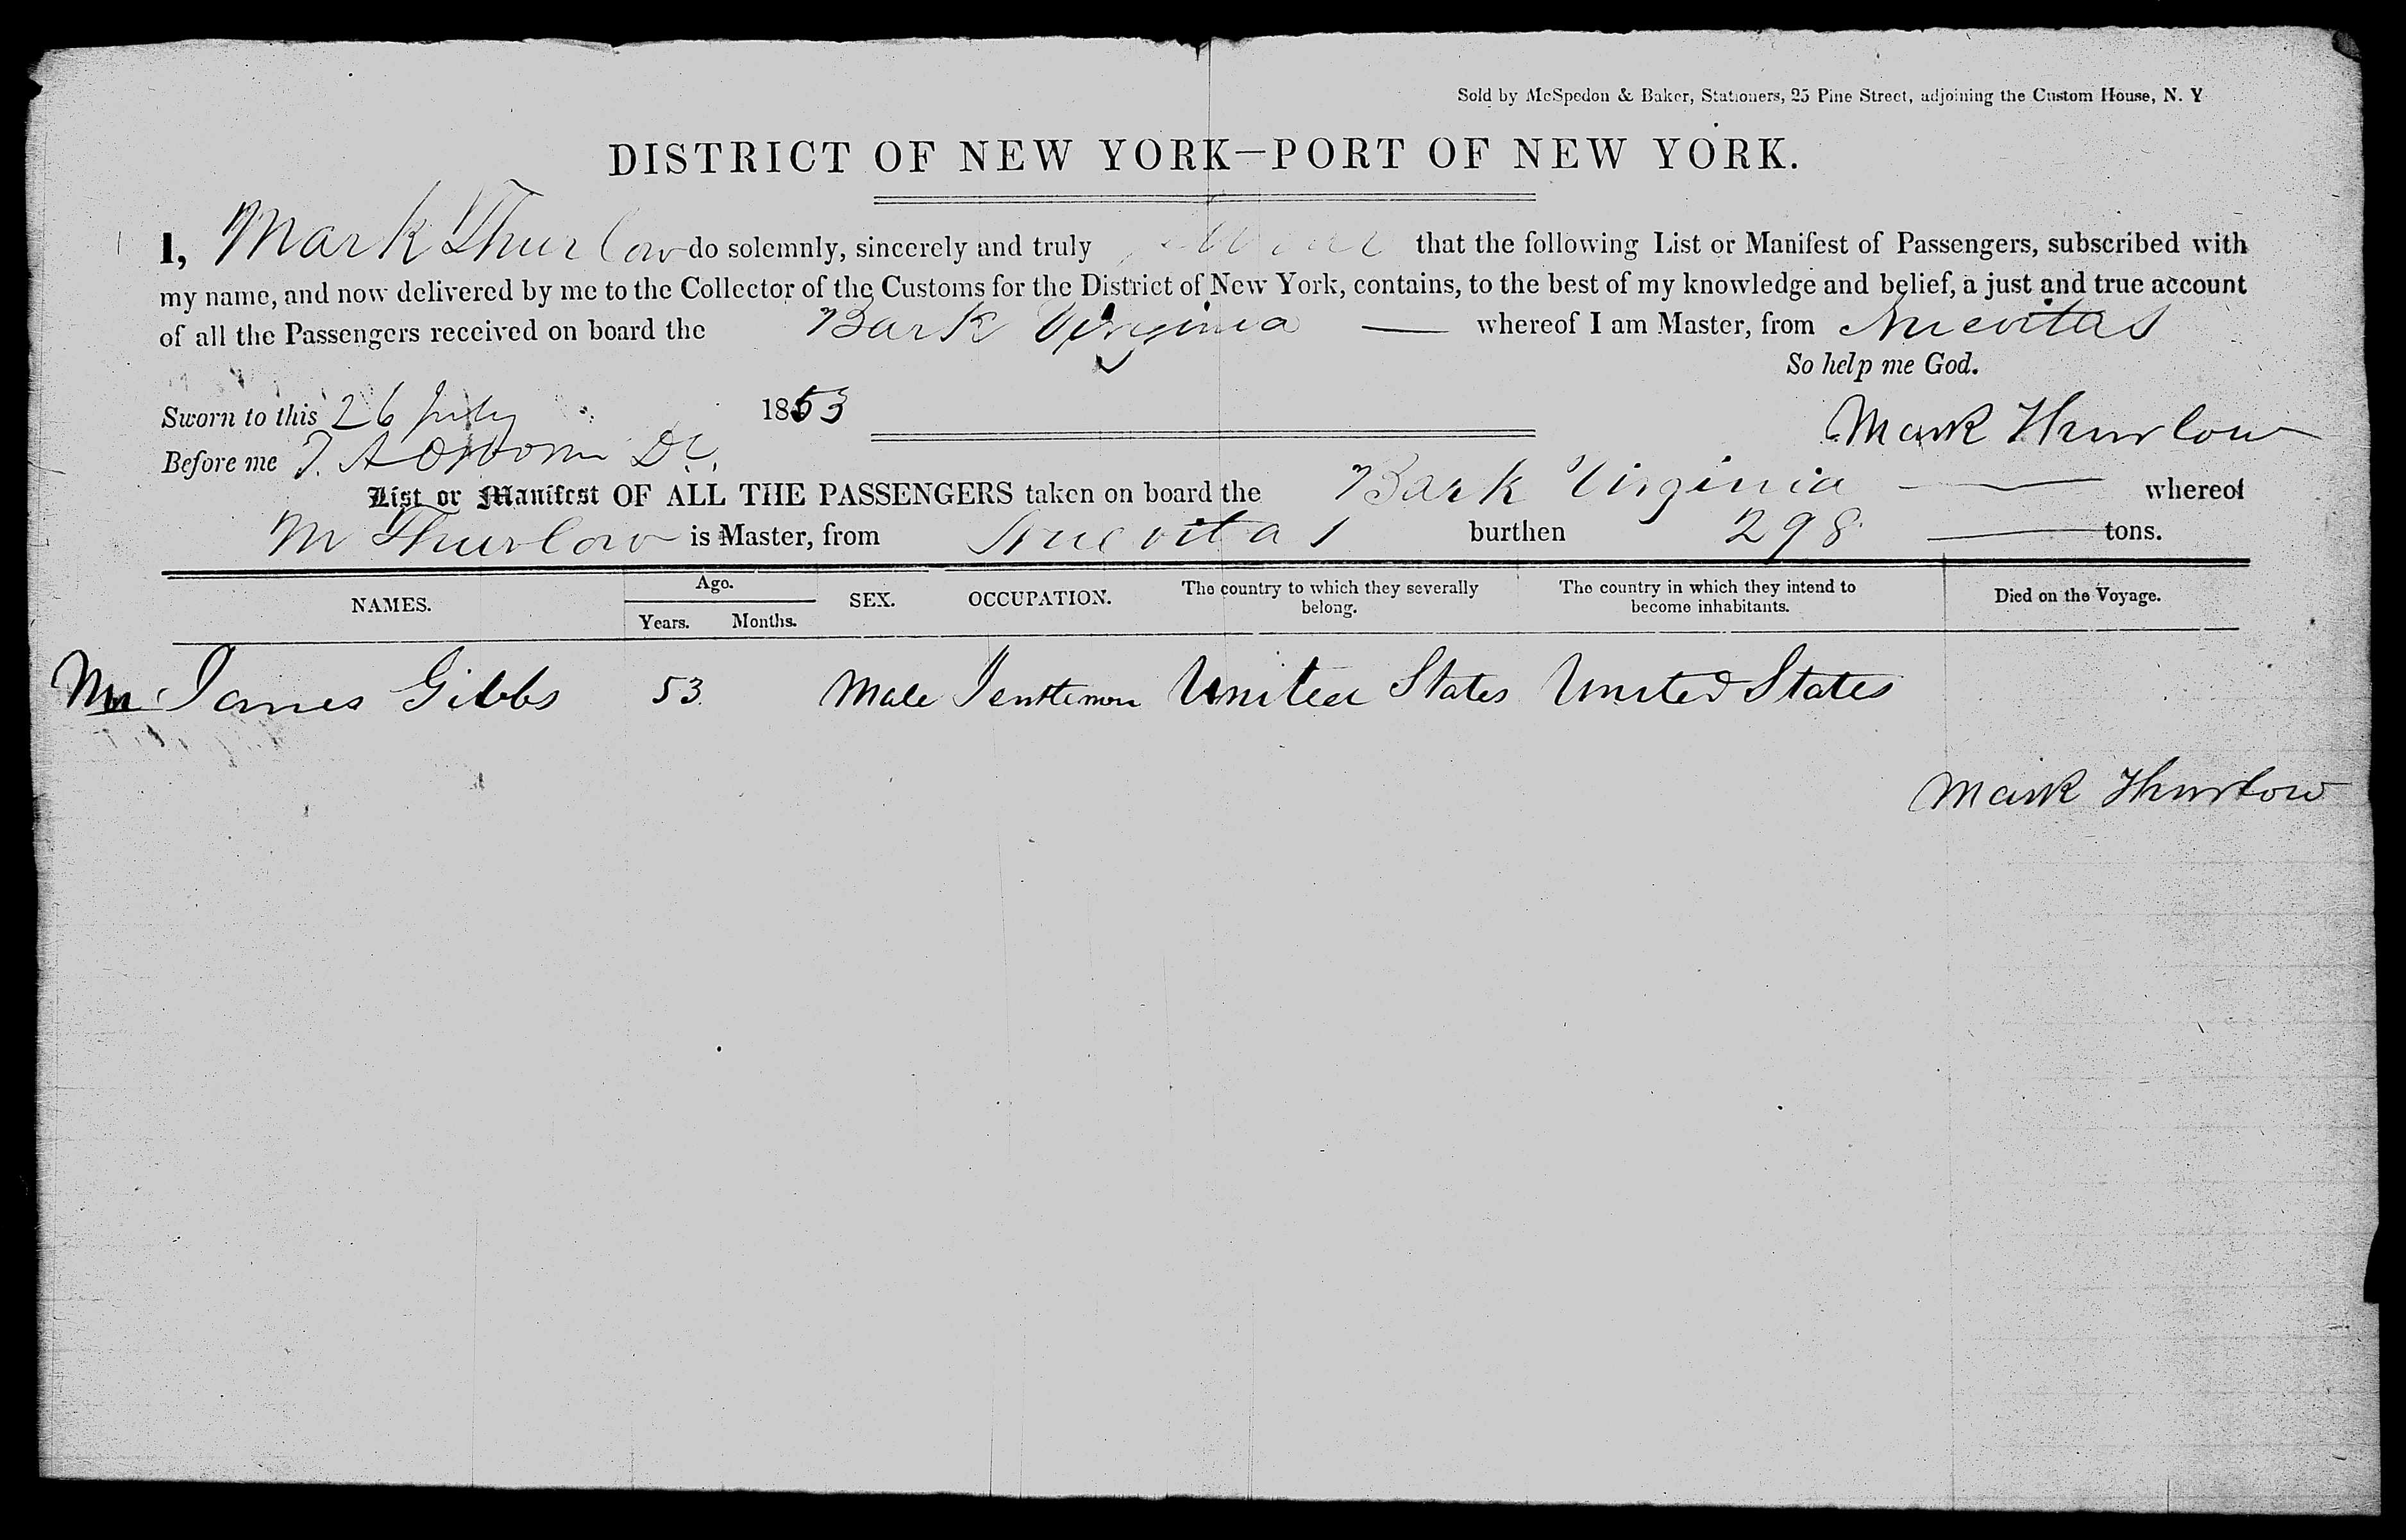 Sold by McSpedon & Baker, Stationers, 25 Pine Street, adjoining the Custom House, N. Y
DISTRICT OF NEW YORK—PORT OF NEW YORK.
I, Mark Thurlow do solemnly, sincerely and truly swear that the following List or Manifest of Passengers, subscribed with
my name, and now delivered by me to the Collector of the Customs for the District of New York, contains, to the best of my knowledge and belief, a just and true account
of all the Passengers received on board the Bark Virginia — whereof I am Master, from Nuevitas
So help me God.
Sworn to this 26 July 1853
Mark Thurlow
Before me
List or Manifest OF ALL THE PASSENGERS taken on board the Bark Virginia — whereof
M Thurlow is Master, from Nuevitas burthen 298 — tons.
NAMES. Age. Years. Months. SEX. OCCUPATION. The country to which they severally belong. The country in which they intend to become inhabitants. Died on the Voyage.
Mr James Gibbs 53 Male Gentleman United States United States
Mark Thurlow